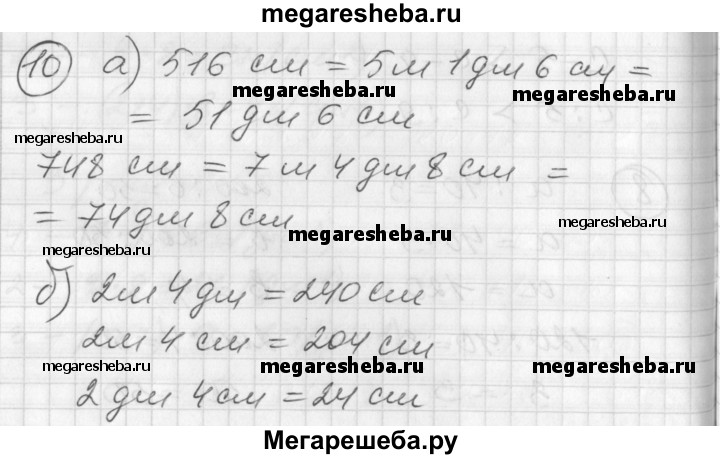 megaresheba.ru
10 а) 516 см = 5м 1дм 6 см =
megaresheba.ru megaresheba.ru
= 51 дм 6 см
megaresheba.ru
748 см = 7 м 4 дм 8 см =
= 74 дм 8 см
megaresheba.ru
megaresheba.ru
megaresheba.ru
б) 2м 4 дм = 240 см
2м 4 см = 204 см
megaresheba.ru megaresheba.ru megaresheba.ru
2 дм 4 см = 24 см
Мегарешеба.ру